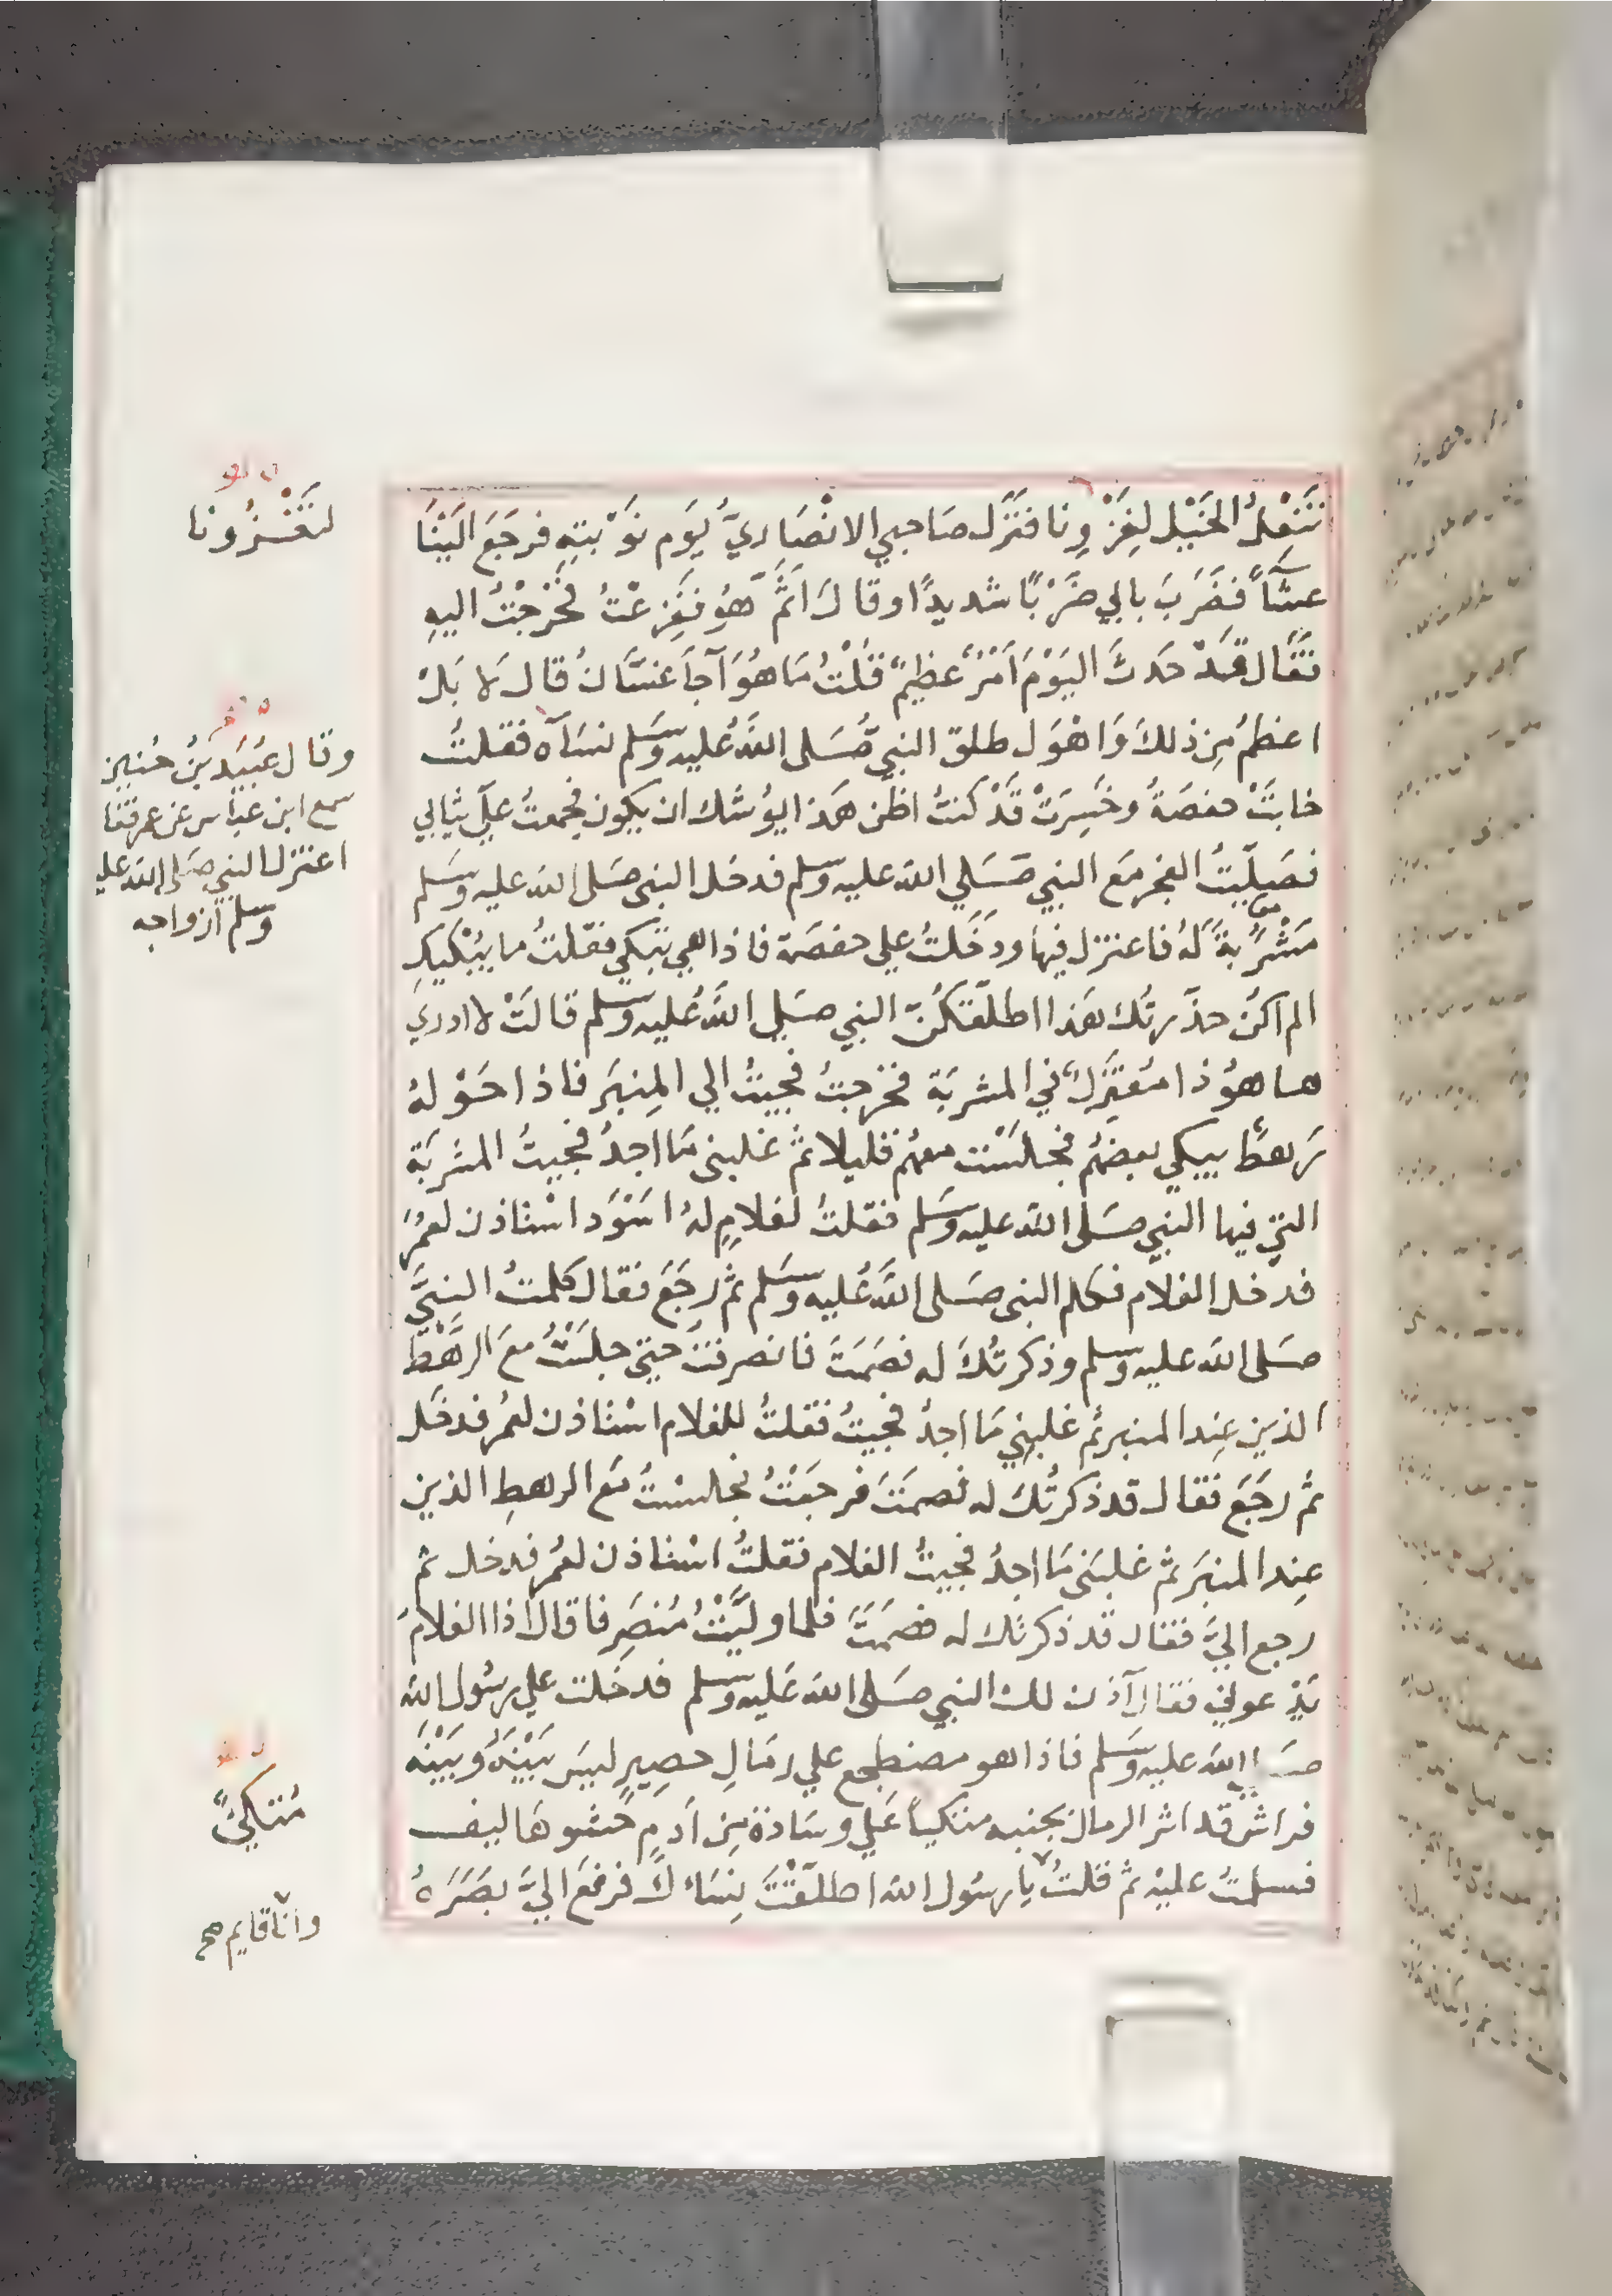 تُنْعِلُ الخَيْل لِغَزْوِنا فنَزَل صَاحبي الانْصَاريُّ يَوم نَوْبتِهِ فرجَعَ الَيْنَا
عشَآءً فضَرَبَ بابي ضَرْبًا شديدًا وقال اَثَمَّ هُو ففَزِعْتُ فخرجْتُ اليهِ
فقال قَدْ حَدثَ اليَوْمَ اَمْرٌ عظِيمٌ قُلْتُ مَا هُوَ آجآَ غسَّانُ قال لا بَلْ
اعظمُ مِن ذلك وَاهْوَل طلق النبيُّ صَلى اللهُ عليه وسَلم نسَآه فقلتُ
خابَتْ حفصَةُ وخَسِرَتْ قَدْ كنتُ اظن هَذا يوُشك ان يكون فجمعتُ عليّ ثيابي
فصَليّتُ الفجر مَع النبي صَلي الله عليه وسلم فدخل النبي صَلى الله عليه وسَلم
مَشْرُبةً لهُ فاعتزل فيها ودَخَلتُ علي حفصَة فاذا هي تبكي فقلتُ ما يبُكيكِ
الم اكن حذّرتُك هَذا اطلّقكُنّ النبي صَلي اللهُ عليه وسلم قالتْ لا ادري
ها هوُ ذا مُعتزلٌ في المشربَة فخرجتُ فجيتُ الي المِنبَر فاذا حَوْلهُ
رَهطٌ يبكي بعضهُم فجلسْت معهُم قليلا ثم غلبني مَا اجدُ فجيتُ المشربَة
التي فيها النبي صَلى الله عليه وسَلم فقلتُ لغلامٍ لهُ اسْوَد اسْتاذن لعمُرَ
فدخل الغلام فكلم النبي صَلى اللهُ عليه وسَلم ثم رجَعَ فقال كلمتُ النبيَّ
صَلى الله عليه وسلم وذكرتُكَ له فصَمَتَ فانصرفتُ حتي جلسْتُ مَعَ الرهْطِ
الذين عِند المنبر ثم غلبني مَا اجدُ فجيتُ فقلتُ للغلام اسْتاذن لعمُر فدخَل
ثم رجَعَ فقال قد ذكرتُكَ له فصمَتَ فرجَعْتُ فجلسْتُ مَع الرهطِ الذين
عِند المنبَر ثم غلبَني مَا اجدُ فجيتُ الغلام فقلتُ اسْتاذن لعمُر فدخل ثم
رجع اليَّ فقال قد ذكرتك له فصَمَتَ فلما وليَّتُ مُنصَرِفا قال اذا الغلامَ
يَدْعوني فقال آذن لك النبي صَلى الله عَليه وسلم فدخَلت علي رسُول الله
صَلى الله عليه وسَلم فاذا هو مضطجع علي رمَالِ حصِيرٍ ليسَ بَيْنَهُ وبَيْنَه
فراشٌ قد اثر الرمال بجنبه متكياً عَلي وسَادة مِن اَدمٍ حَشوهَا ليف
فسلمتُ عليْه ثم قلتُ يا رسُول الله اطلقْتَ نِسَاءك فرفعَ اليَّ بصَرَهُ
لتَغْزُونا
وقال عُبَيدُ بنُ حُنين
سمع ابن عباس عن عمر فقال
اعتزل النبي صَلى الله عليه
وسلم ازواجه
مُتكِئٌ
وانا قايم صح